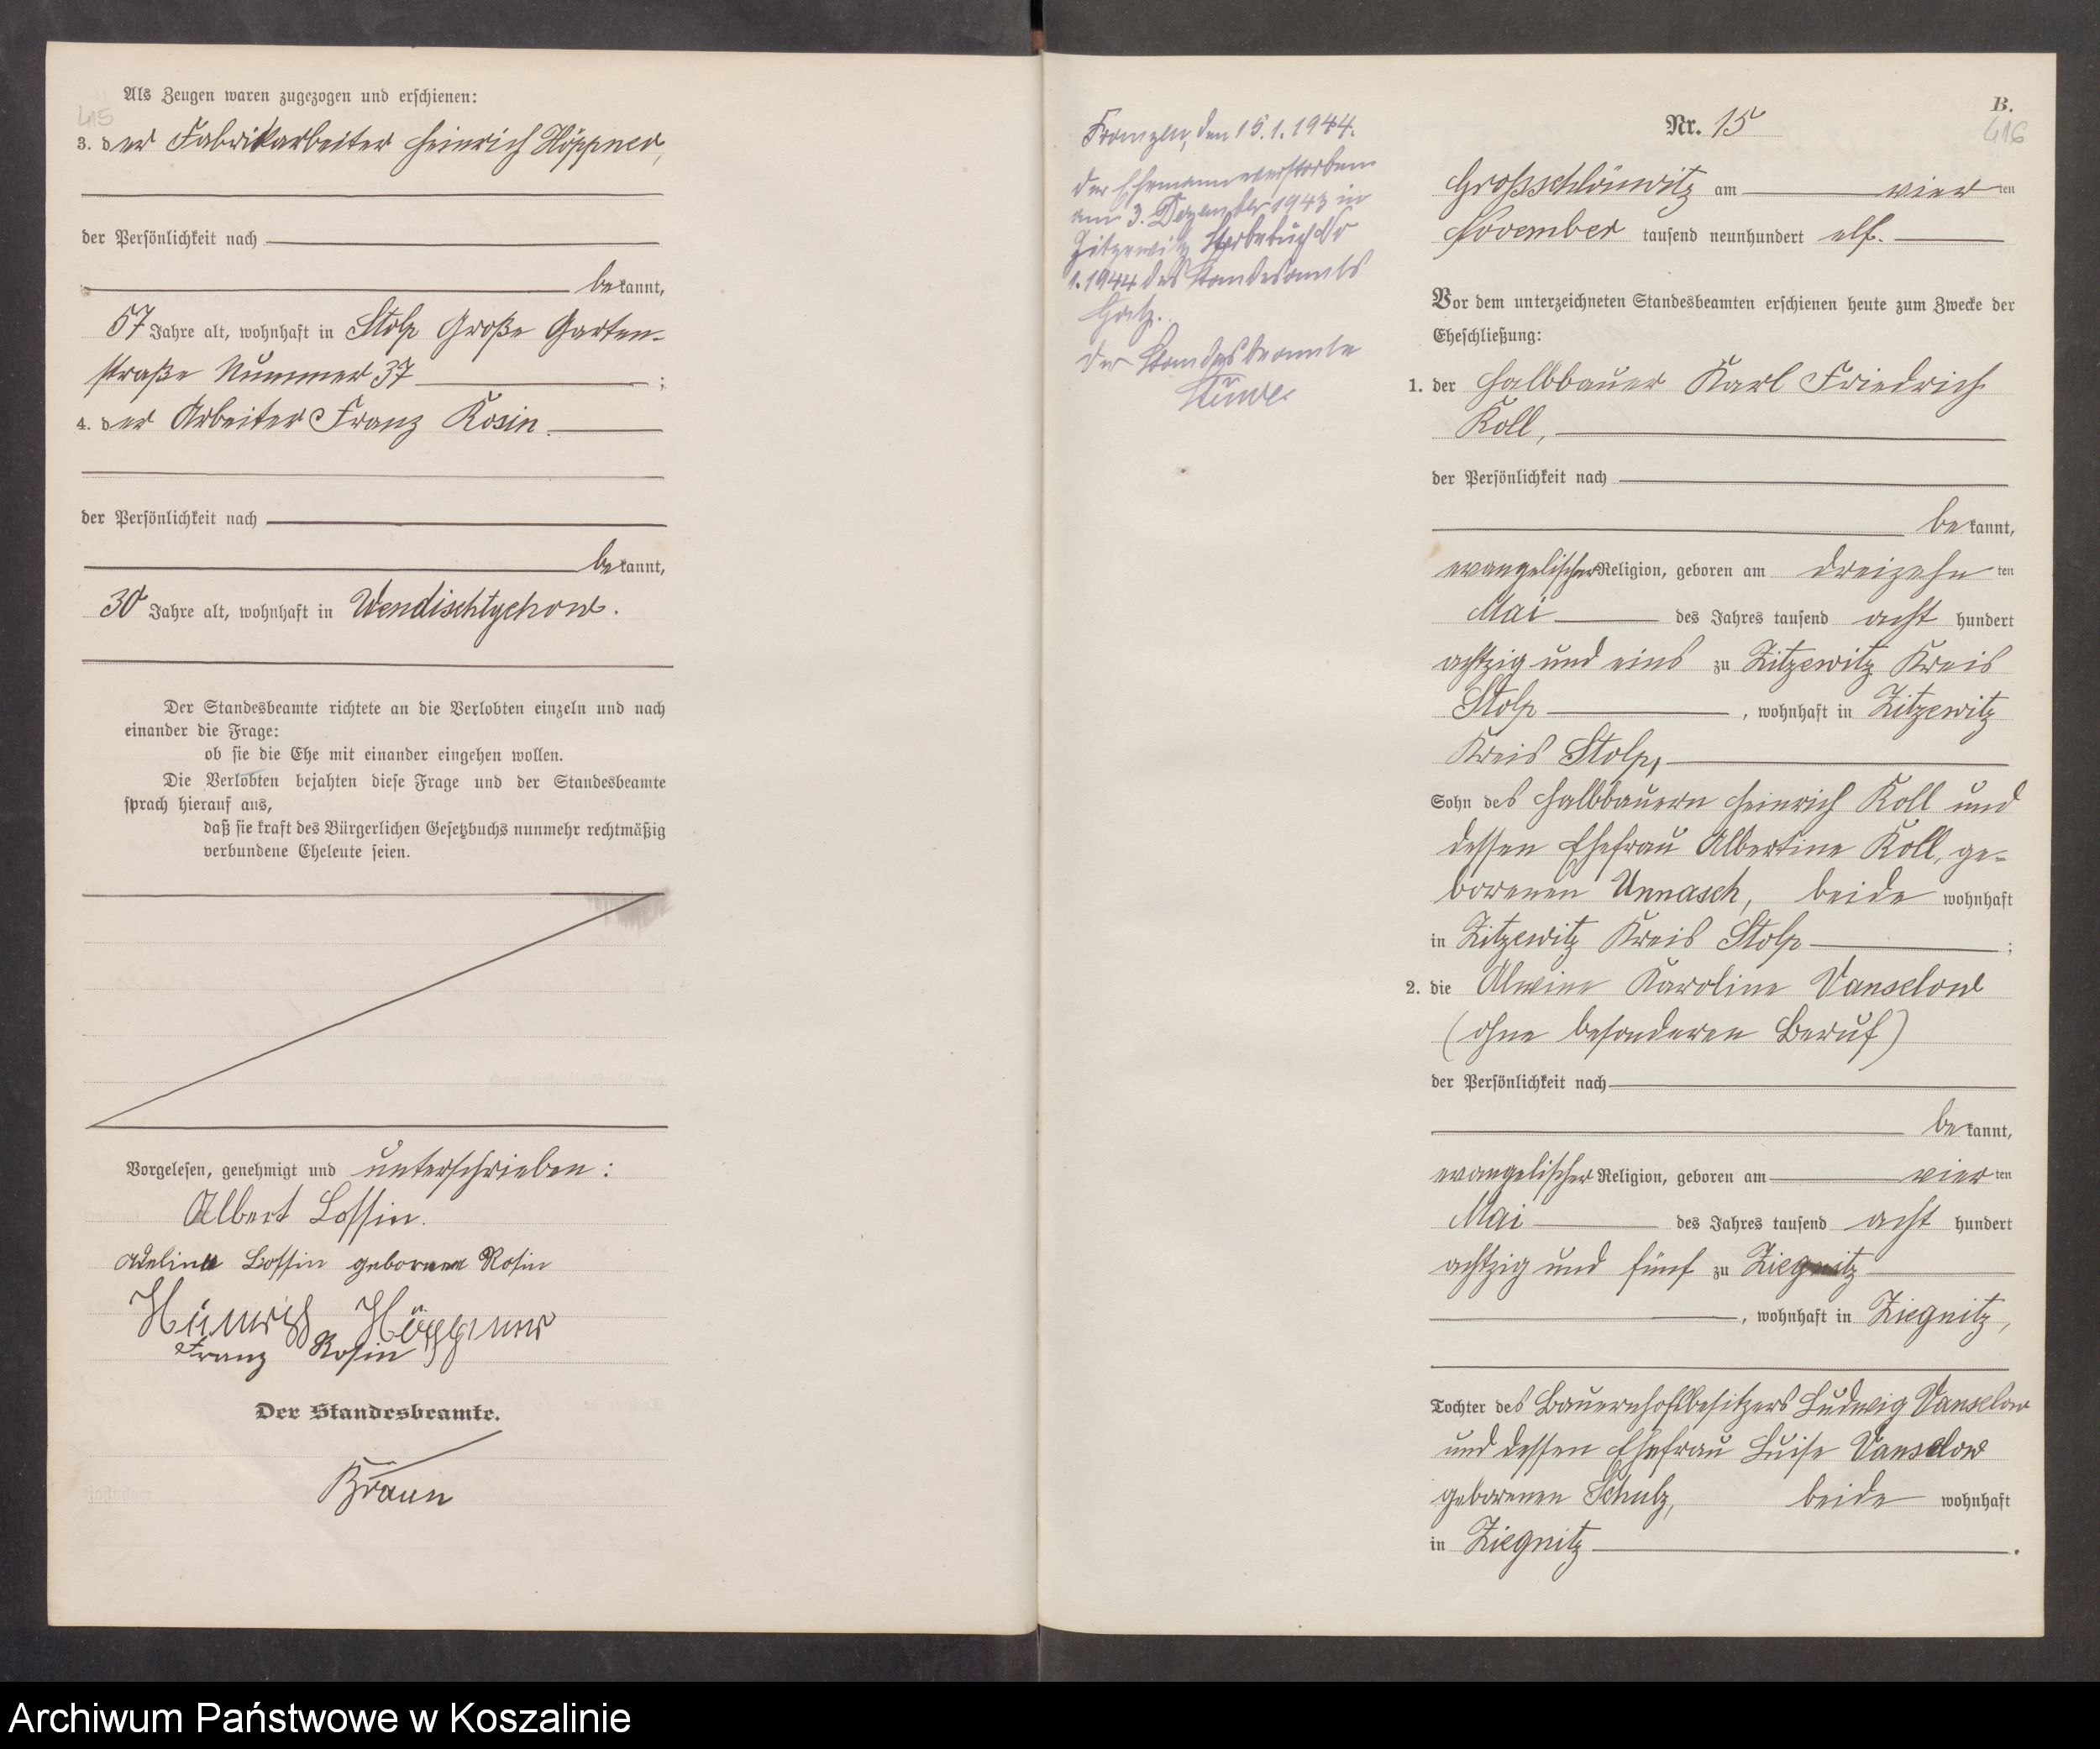 Als Zeugen waren zugezogen und erschienen:
415
3. der Fabrikarbeiter Heinrich Höppner,
der Persönlichkeit nach
bekannt,
57 Jahre alt, wohnhaft in Stolp Große Garten-
straße Nummer 37 ;
4. der Arbeiter Franz Rosin
der Persönlichkeit nach
bekannt,
30 Jahre alt, wohnhaft in Wendischtychow.
Der Standesbeamte richtete an die Verlobten einzeln und nach
einander die Frage:
ob sie die Ehe mit einander eingehen wollen.
Die Verlobten bejahten diese Frage und der Standesbeamte
sprach hierauf aus,
daß sie kraft des Bürgerlichen Gesetzbuchs nunmehr rechtmäßig
verbundene Eheleute seien.
Vorgelesen, genehmigt und unterschrieben:
Albert Lossin.
Adeline Lossin geborenen Rosin
Heinrich Höppner
Franz Rosin
Der Standesbeamte.
Braun
Franzen, den 15.1.1944.
Der Ehemann verstorben
am 3. Dezember 1943 in
Zitzewitz Sterbebuch Nr
1.1944 des Standesamts
Der Standesbeamte
B.
416
Nr. 15
Grossschlönwitz am vierten
November tausend neunhundert elf.
Vor dem unterzeichneten Standesbeamten erschienen heute zum Zwecke der
Eheschließung:
1. der Halbbauer Karl Friedrich
Koll,
der Persönlichkeit nach
bekannt,
evangelischer Religion, geboren am dreizehnten
Mai des Jahres tausend acht hundert
achtzig und eins zu Zitzewitz Kreis
Stolp , wohnhaft in Zitzewitz
Kreis Stolp,
Sohn des Halbbauern Heinrich Koll und
dessen Ehefrau Albertine Koll, ge-
borenen Unnasch, beide wohnhaft
in Zitzewitz Kreis Stolp ;
2. die Alwine Karoline Vanselow
(ohne besonderen Beruf)
der Persönlichkeit nach
bekannt,
evangelischer Religion, geboren am vierten
Mai des Jahres tausend acht hundert
achtzig und fünf zu Ziegnitz
, wohnhaft in Ziegnitz,
Tochter des Bauernhofsbesitzers Ludwig Vanselow
und dessen Ehefrau Luise Vanselow
geborenen Schulz, beide wohnhaft
in Ziegnitz .
Archiwum Państwowe w Koszalinie